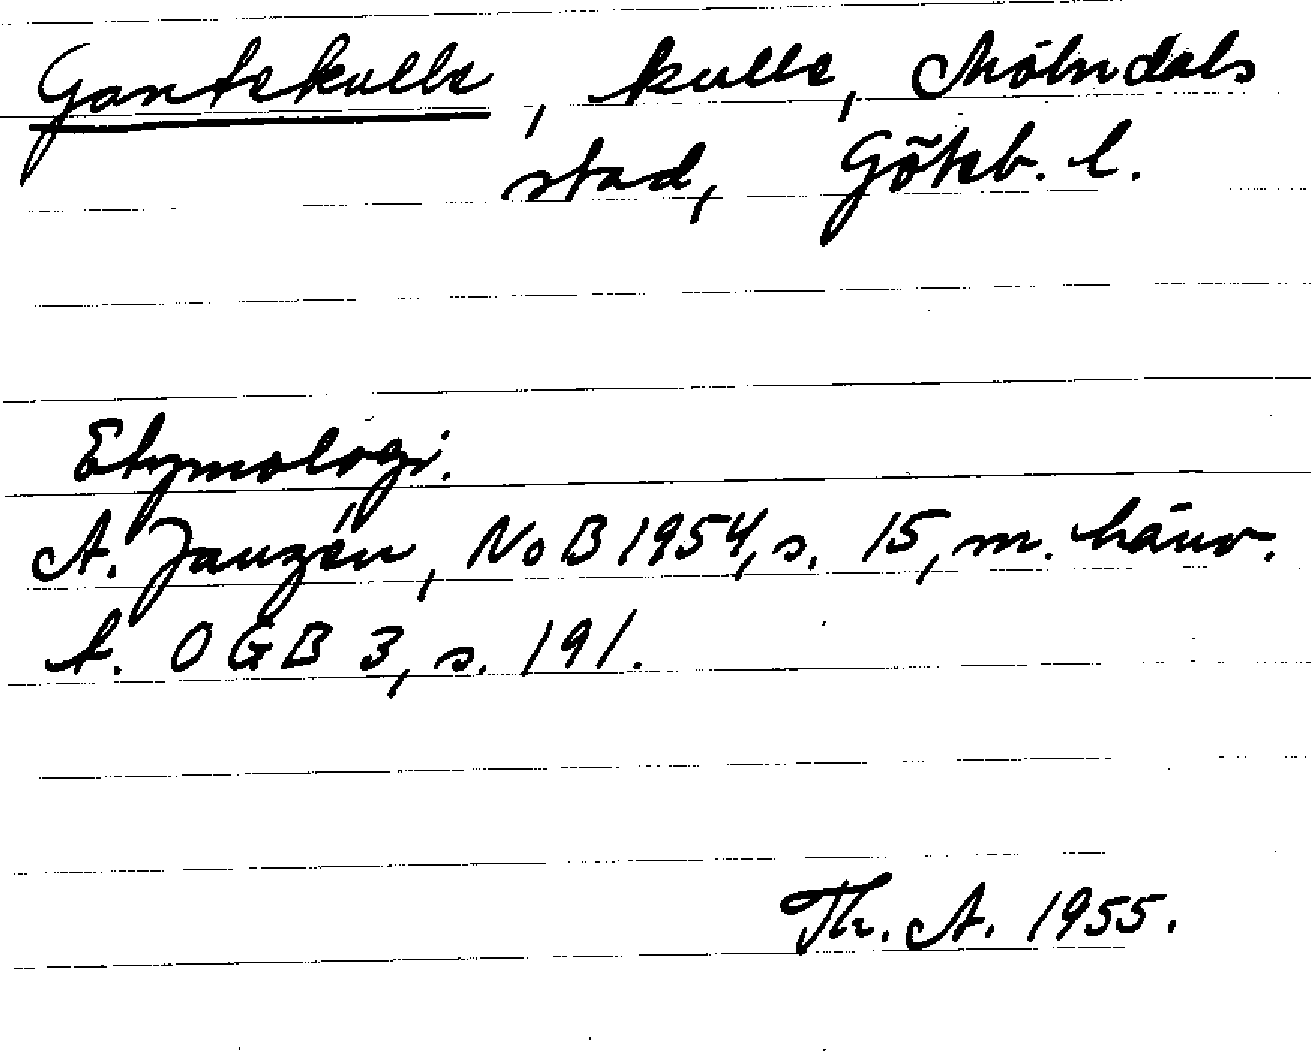 Gantekulle, kulle, Mölndals
stad, Göteb. l.
Etymologi.
A. Janzén, NoB 1954, s. 15, m. hänv.
t. OGB 3, s. 191.
Th. A. 1955.